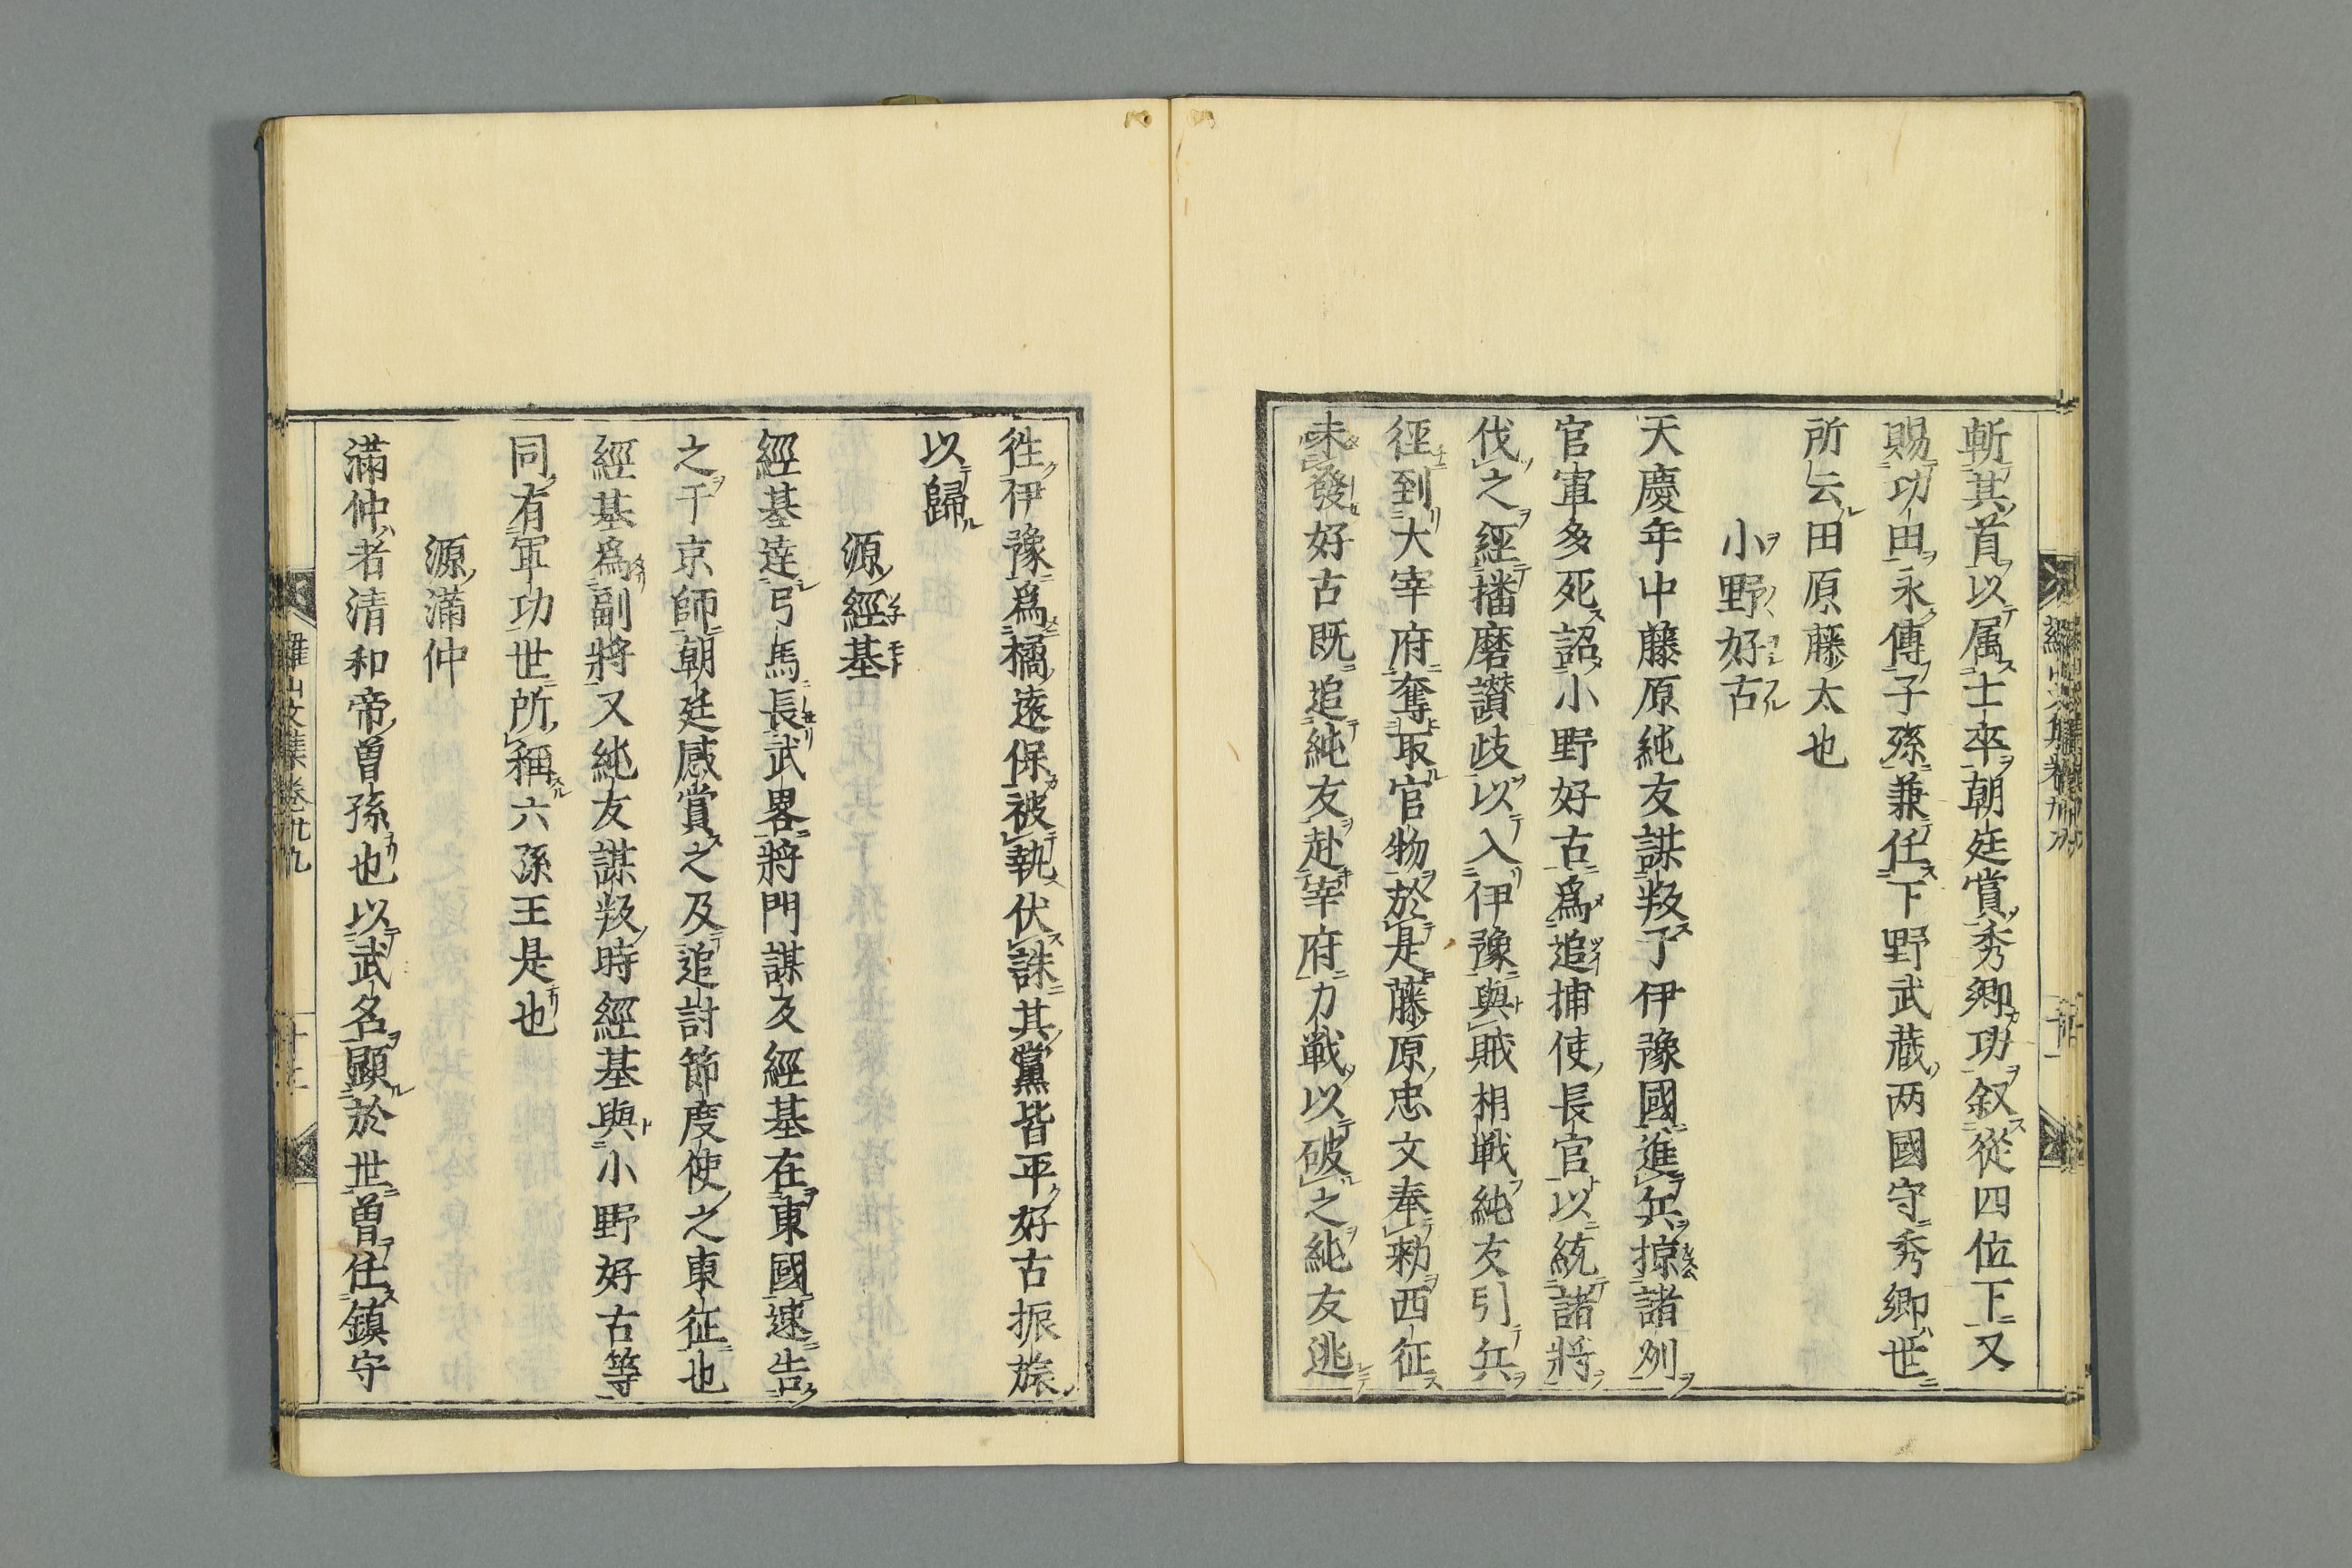 斬其首以属士卒朝廷賞秀卿功叙從四位下又
賜功田永傳子孫兼任下野武蔵两國守秀卿世
所云田原藤太也
小野好古
天慶年中藤原純友謀叛于伊豫國進兵掠諸州
官軍多死詔小野好古爲追捕使長官以統諸將
伐之經播磨讃歧以入伊豫與賊相戦純友引兵
徑到大宰府奪取官物於是藤原忠文奉勅西征
未發好古既追純友赴宰府力戦以破之純友逃
徃伊豫爲橘遠保被執伏誅其黨皆平好古振旅
以歸
源經基
經基達弓馬長武畧將門謀反經基在東國速告
之于京師朝廷感賞之及追討節度使之東征也
經基爲副將又純友謀叛時經基與小野好古等
同有軍功世所稱六孫王是也
源滿仲
滿仲者清和帝曽孫也以武名顯於世曽任鎮守
羅山文集卷卅九